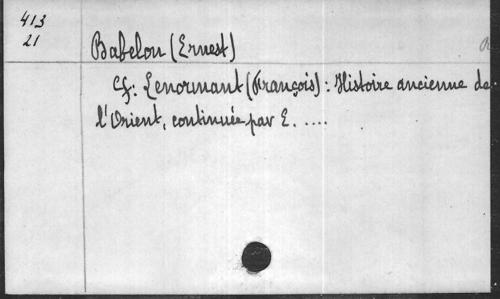 413
21
Babelon (Ernest)
Cf: Lenormant (François) : Histoire ancienne de
l'Orient, continuée par E. ....